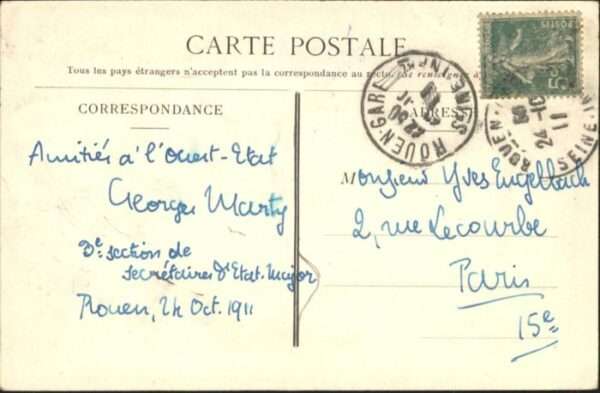 CARTE POSTALE
Tous les pays étrangers n'acceptent pas la correspondance au recto
CORRESPONDANCE
ADRESSE
Amitiés à l'Ouest-Etat
Georges Marty
3e section de
secrétaires d'Etat-Major
Rouen, 24 Oct. 1911
Monsieur Yves Engelbach
2, rue Lecourbe
Paris
15e
ROUEN-GARE
22 30
ROUEN
24-10
11
SEINE-IN
POSTES
5c